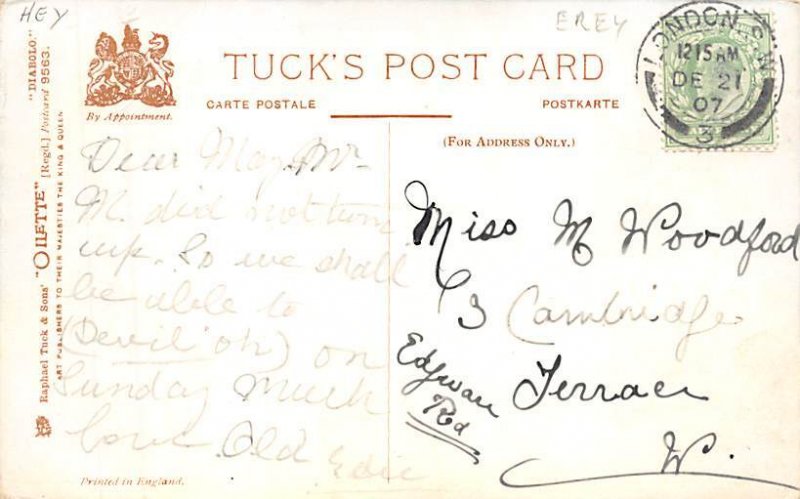 HEY
EREY
TUCK'S POST CARD
CARTE POSTALE
POSTKARTE
By Appointment.
(For Address Only.)
LONDON
12 15 AM
DE 21
07
3
Raphael Tuck & Sons' "OILETTE" [Regd.] Postcard 9563. "DIABOLO."
ART PUBLISHERS TO THEIR MAJESTIES THE KING & QUEEN
Dear May. Mr
M. did not turn
up. So we shall
be able to
(Devil 'oh) on
Sunday Much
love Old Edie
Miss M Woodford
Cambridge
Terrace
Edgware
Rd
W.
Printed in England.